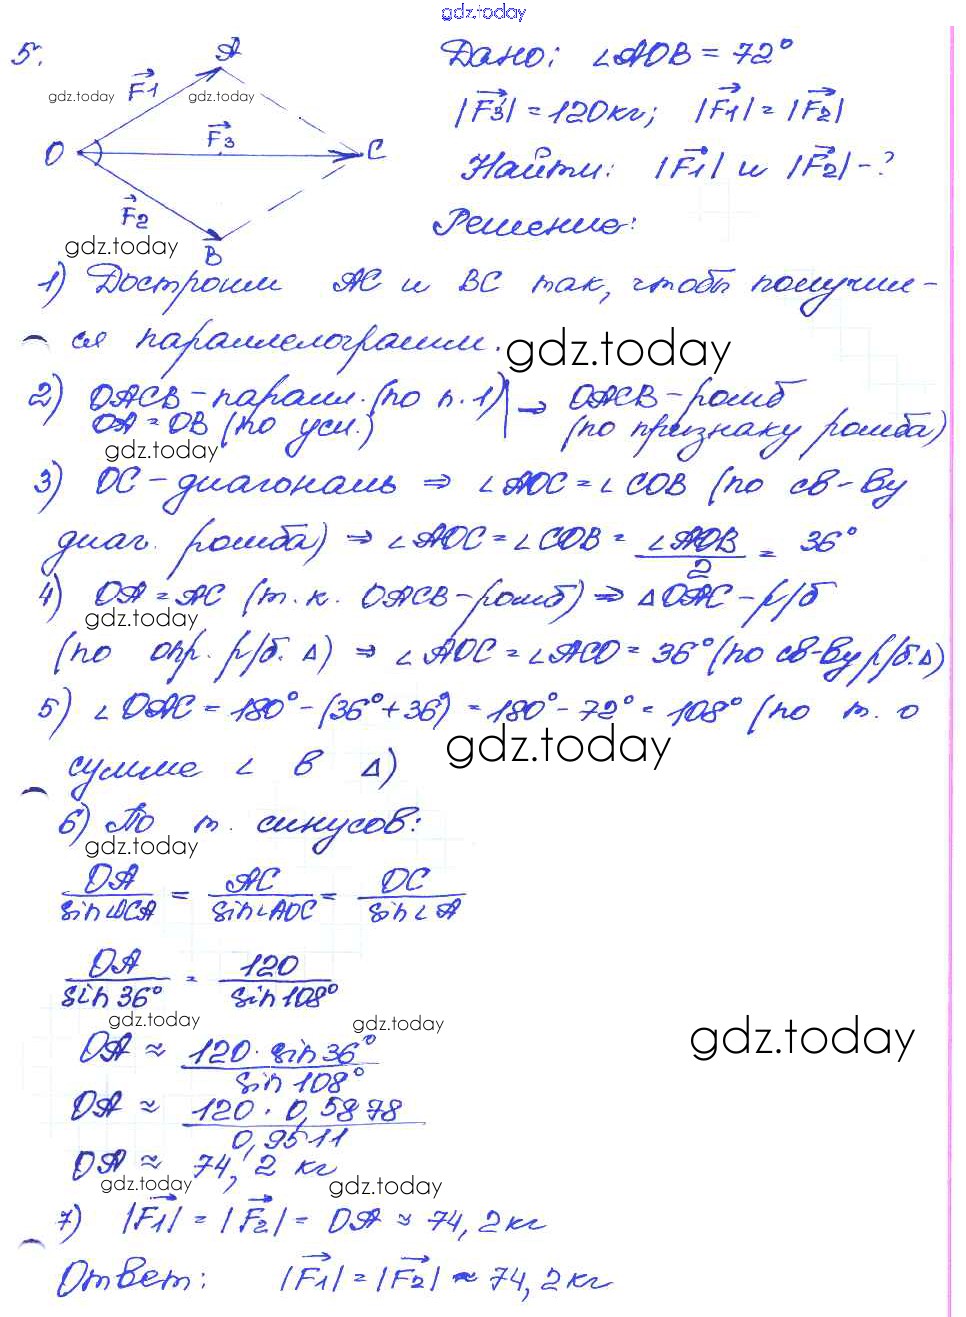 gdz.today
5.
A
Дано: ∠AOB = 72°
F1
gdz.today
gdz.today
|F3| = 120кг; |F1| = |F2|
O
F3
C
Найти: |F1| и |F2| - ?
F2
Решение:
gdz.today
B
1) Достроим AC и BC так, чтобы получил-
ся параллелограмм.
gdz.today
2) OACB - паралл. (по п. 1) ⇒ OACB - ромб
OA = OB (по усл.) (по признаку ромба)
gdz.today
3) OC - диагональ ⇒ ∠AOC = ∠COB (по св-ву
диаг. ромба) ⇒ ∠AOC = ∠COB = ∠AOB/2 = 36°
4) OA = AC (т.к. OACB - ромб) ⇒ △OAC - р/б
gdz.today
(по опр. р/б. △) ⇒ ∠AOC = ∠ACO = 36° (по св-ву р/б. △)
5) ∠OAC = 180° - (36° + 36°) = 180° - 72° = 108° (по т. о
gdz.today
сумме ∠ в △)
6) По т. синусов:
gdz.today
OA/sin∠OCA = AC/sin∠AOC = OC/sin∠A
OA/sin36° = 120/sin108°
gdz.today
gdz.today
gdz.today
OA ≈ 120·sin36°/sin108°
OA ≈ 120·0,5878/0,9511
OA ≈ 74,2 кг
gdz.today
gdz.today
7) |F1| = |F2| = OA ≈ 74,2кг
Ответ: |F1| = |F2| ≈ 74,2кг